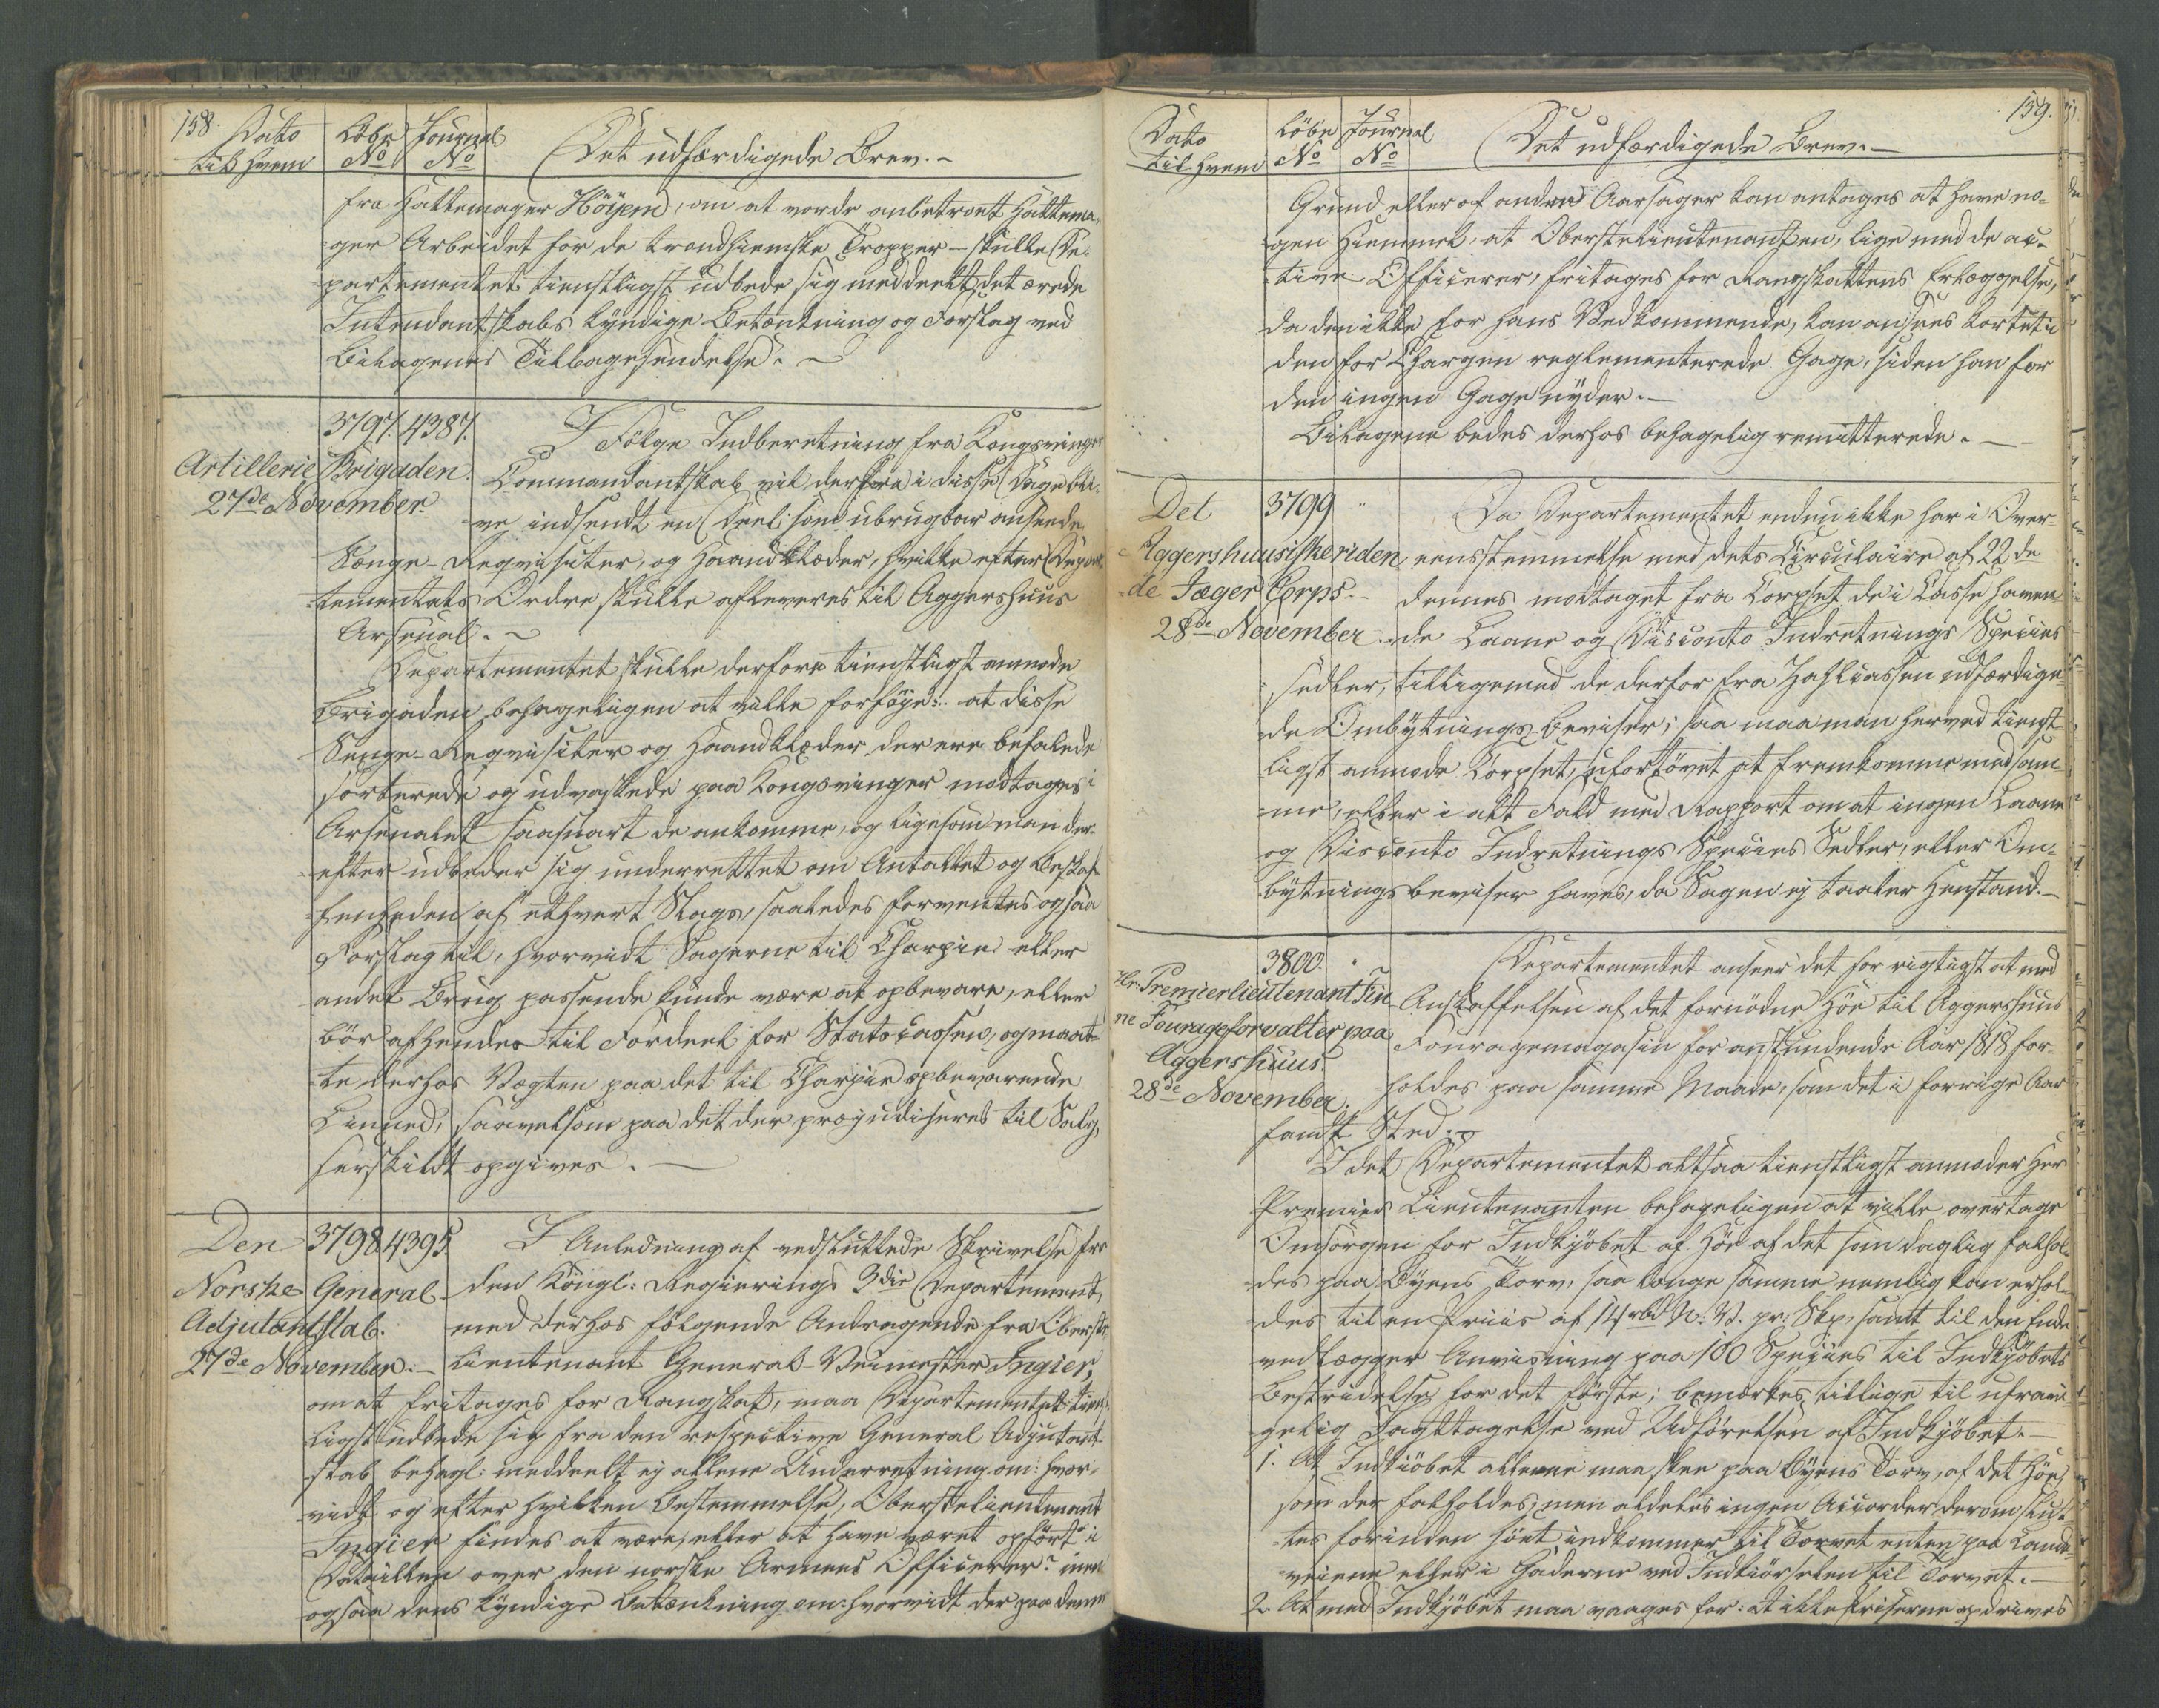 158.
Dato
til hvem
Løbe
No
Journal
No
Det udfærdigede Brev. -
fra Hattemager Höyem, om at vorde anbetroet Hattema-
ger Arbeidet for de trondhiemske Tropper - skulle De-
partementet tienstligst udbede sig meddeelt det ærede
Intendantskabs kyndige Betænkning og Forslag ved
Bilagenes Tilbagesendelse. -
3797. 4387.
Artillerie Brigaden.
27de November.
I Følge Indberetning fra Kongsvinger
Commandantskab vil derfra i disse Dage bli-
ve indsendt en Deel som ubrugbar anseede
Senge-Reqvisiter, og Haandklæder, hvilke efter Depar-
tementets Ordre skulle afleveres til Aggershuus
Arsenal. -
Departementet skulle derfore tienstligst anmode
Brigaden behageligen at ville forføye: at disse
Senge-Reqvisiter og Haandklæder der ere befalede
sorterede og udvaskede paa Kongsvinger modtages i
Arsenalet saasnart de ankomme, og ligesom man der-
efter udbeder sig underrettet om Antallet og Beskaf-
fenheden af ethvert Slags, saaledes forventes ogsaa
Forslag til, hvorvidt Sagerne til Charpie eller
andet Brug passende kunde være at opbevare, eller
bör afhendes til Fordeel for Statscassen, og maat-
te derhos Vægten paa det til Charpie opbevarende
Linned, saavelsom paa det der præjudiseres til Salg,
serskildt opgives. -
3798 4395
Den
Norske General
Adjutantstab.
27de November. -
I Anledning af vedsluttede Skrivelse fra
den Kongl: Regierings 3die Departement,
med derhos følgende Andragende fra Oberst-
lieutenant General-Veimester Ingier,
om at fritages for Rangskat, maa Departementet tienst-
ligst udbede sig fra den respective General Adjutant-
stab behagl: meddeelt ej allene Underretning om: hvor-
vidt og efter hvilken Bestemmelse, Oberstelieutenant
Ingier findes at være, eller at have været opført i
Detaillen over den norske Armees Officerer? men
ogsaa dens kyndige Betænkning om: hvorvidt der paa denne
159.
Dato
til hvem
Løbe
No
Journal
No
Det udfærdigede Brev. -
Grund eller af andre Aarsager kan antages at have no-
gen Hiemmel, at Oberstelieutenanten, lige med de ac-
tive Officerer, fritages for Rangskattens Erlæggelse,
da den ikke for hans Vedkommende, kan ansees kortet i
den for Chargen reglementerede Gage, siden han for
den ingen Gage nyder. -
Bilagene bedes derhos behagelig remitterede. -
3799 "
Det
Aggershuusiske riden
de Jæger Corps. -
28de November.
Da Departementet endnu ikke har i Over-
eensstemmelse med dets Circulaire af 22de
dennes modtaget fra Corpset de i Casse haven-
de Laane og Disconto Indretnings Species
sedler, tilligemed de derfor fra Zahlcassen udfærdige-
de Ombytnings-Beviser; saa maa man herved tienst-
ligst anmode Corpset, ufortövet at fremkomme med sam-
me, eller i alt Fald med Rapport om at ingen Laane
og Disconto Indretnings Species Sedler, eller Om-
bytningsbeviser haves, da Sagen ej taaler Henstand. -
3800. "
Hr. Premierlieutenant Fin
ne Fourageforvalter paa
Aggershuus.
28de November.
Departementet anseer det for rigtigst at med
Anskaffelsen af det fornödne Höe til Aggershuus
Fouragemagasin for anstundende Aar 1818 for-
holdes paa samme Maade, som det i forrige Aar
fandt Sted. -
I det Departementet altsaa tienstligst anmoder Herr
Premier Lieutenanten behageligen at ville overtage
Omsorgen for Indkjöbet af Höe af det som daglig falhol-
des paa Byens Torv, saa længe samme nemlig kan erhol-
des til en Priis af 14 rbd N: V. pr: Skp, samt til den Ende
vedlægger Anviisning paa 100 Species til Indkjöbets
Bestridelse for det förste; bemærkes tillige til ufravi-
gelig Iagttagelse ved Udförelsen af Indkjöbet. -
1. At Indkiöbet allene maa skee paa Byens Torv, af det Höe,
som der falholdes, men aldeles ingen Accorder derom slut-
tes forinden Höet indkommer til Torvet enten paa Lande-
veiene eller i Gaderne ved Indkiörselen til Torvet. -
2. At med Indkjöbet maa vaages for: at ikke Priserne opdrives